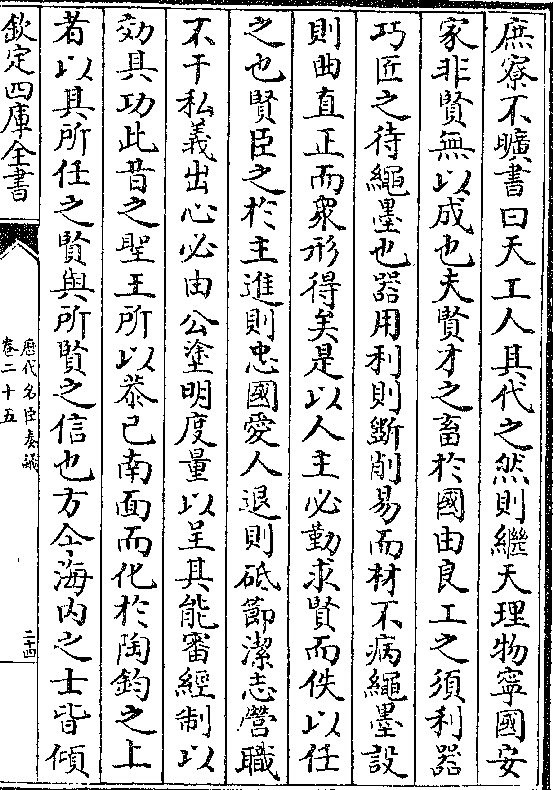 庶寮不曠書曰天工人其代之然則繼天理物寧國安
家非賢無以成也夫賢才之畜於國由良工之須利器
巧匠之待繩墨也器用利則斲削易而材不病繩墨設
則曲直正而衆形得矣是以人主必勤求賢而佚以任
之也賢臣之於主進則忠國愛人退則砥節潔志營職
不干私義出心必由公塗明度量以呈其能審經制以
効其功此昔之聖王所以恭己南面而化於陶鈞之上
者以其所任之賢與所賢之信也方今海内之士皆傾
欽定四庫全書
歴代名臣奏議
卷二十五
二十四